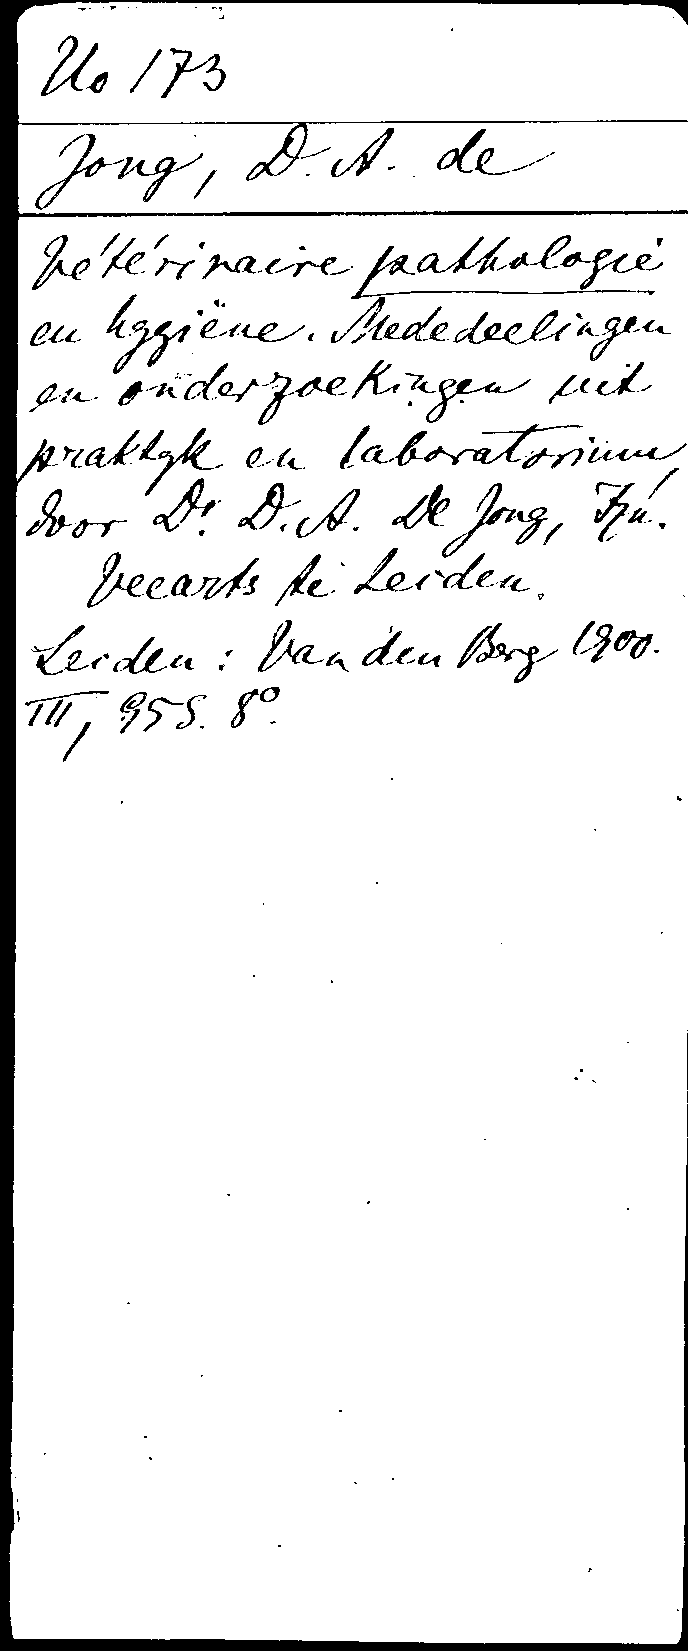 Uo 173
Jong, D. A. de
Vétérinaire pathologie
en hygiëne. Mededeelingen
en onderzoekingen uit
praktyk en laboratorium,
door Dr. D. A. De Jong, Jzn.
Veearts te Leiden.
Leiden: Van den Berg 1900.
III, 95 S. 8°.